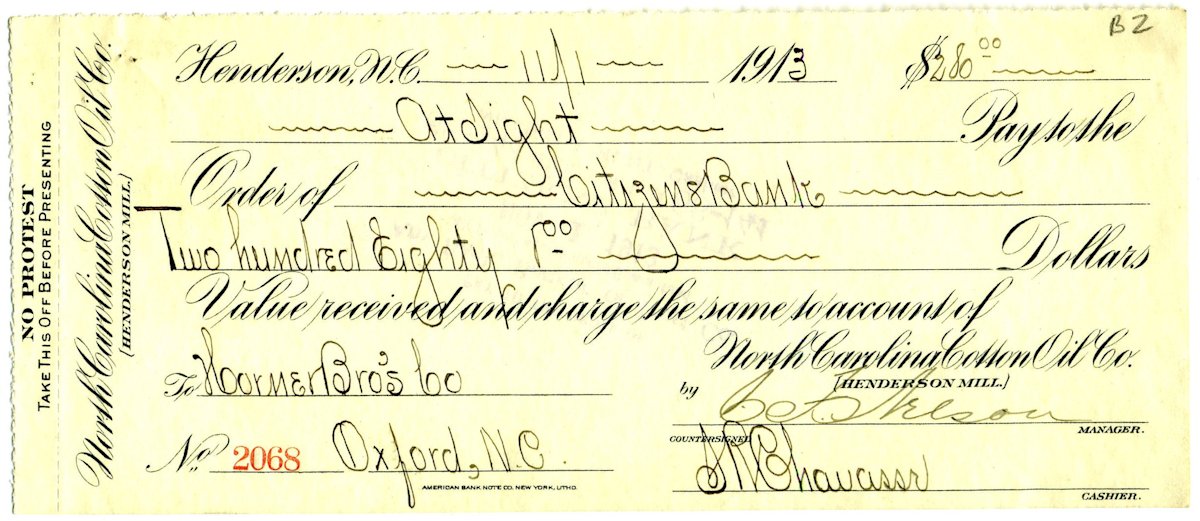 B2
NO PROTEST
TAKE THIS OFF BEFORE PRESENTING
North Carolina Cotton Oil Co.
[HENDERSON MILL.]
Henderson, N.C. 11/1 1913 $280 00
At Sight Pay to the
Order of Citizens Bank
Two hundred Eighty 00 Dollars
Value received and charge the same to account of
North Carolina Cotton Oil Co.
[HENDERSON MILL.]
To Horner Bro's Co
by Nelson
MANAGER.
No. 2068 Oxford, N.C.
COUNTERSIGNED
Chavasse
CASHIER.
AMERICAN BANK NOTE CO. NEW YORK, LITHO.